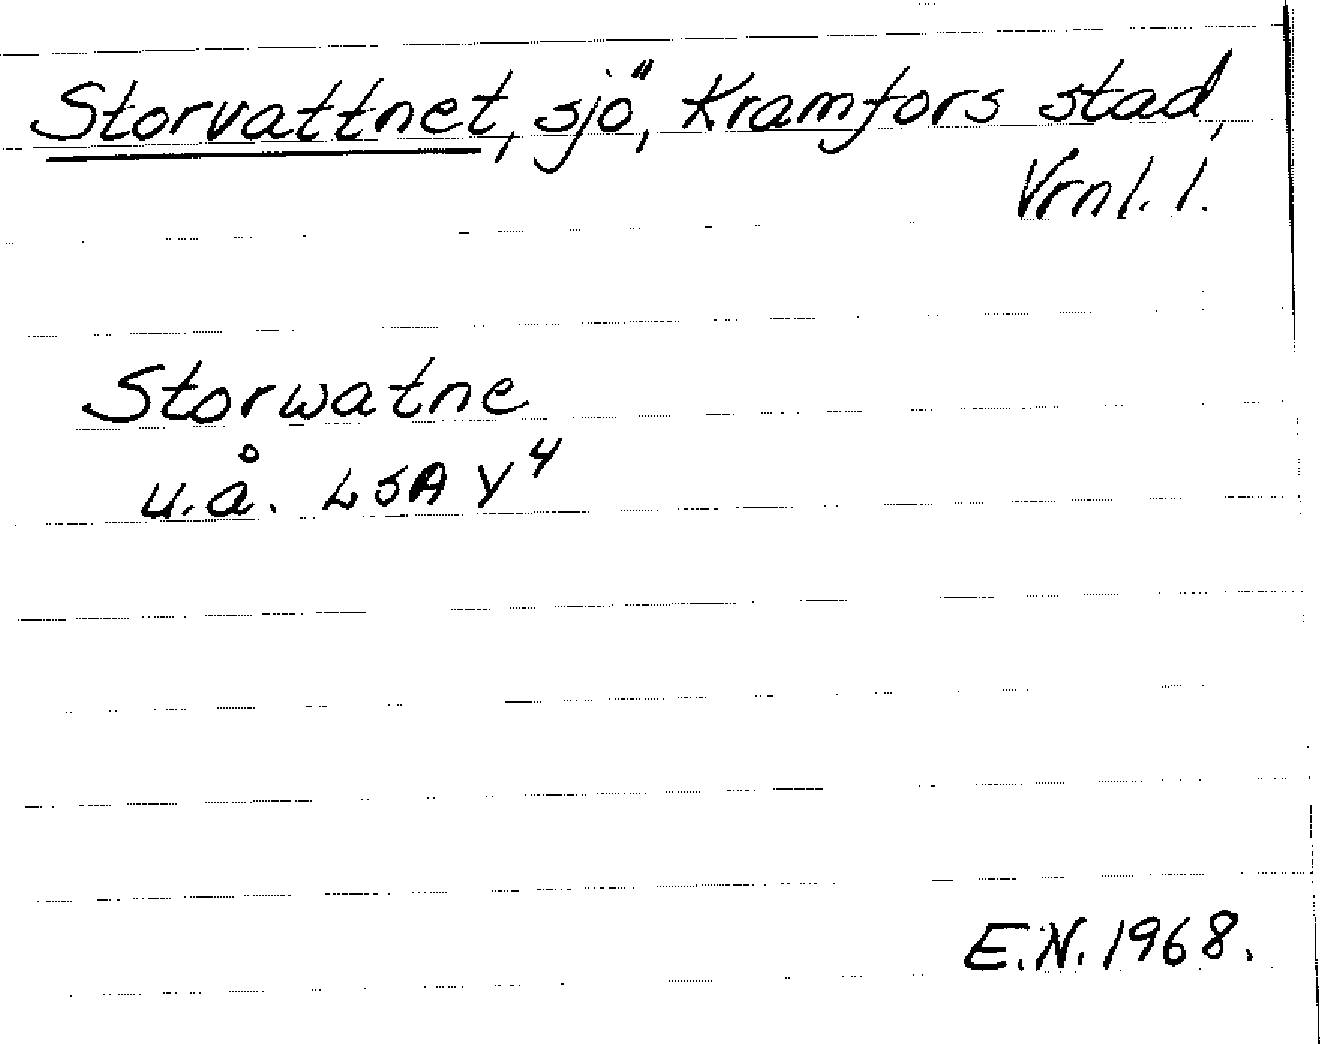 Storvattnet, sjö, Kramfors stad,
Vrnl. l.
Storwatne
u.å. LSA Y⁴
E.N. 1968.